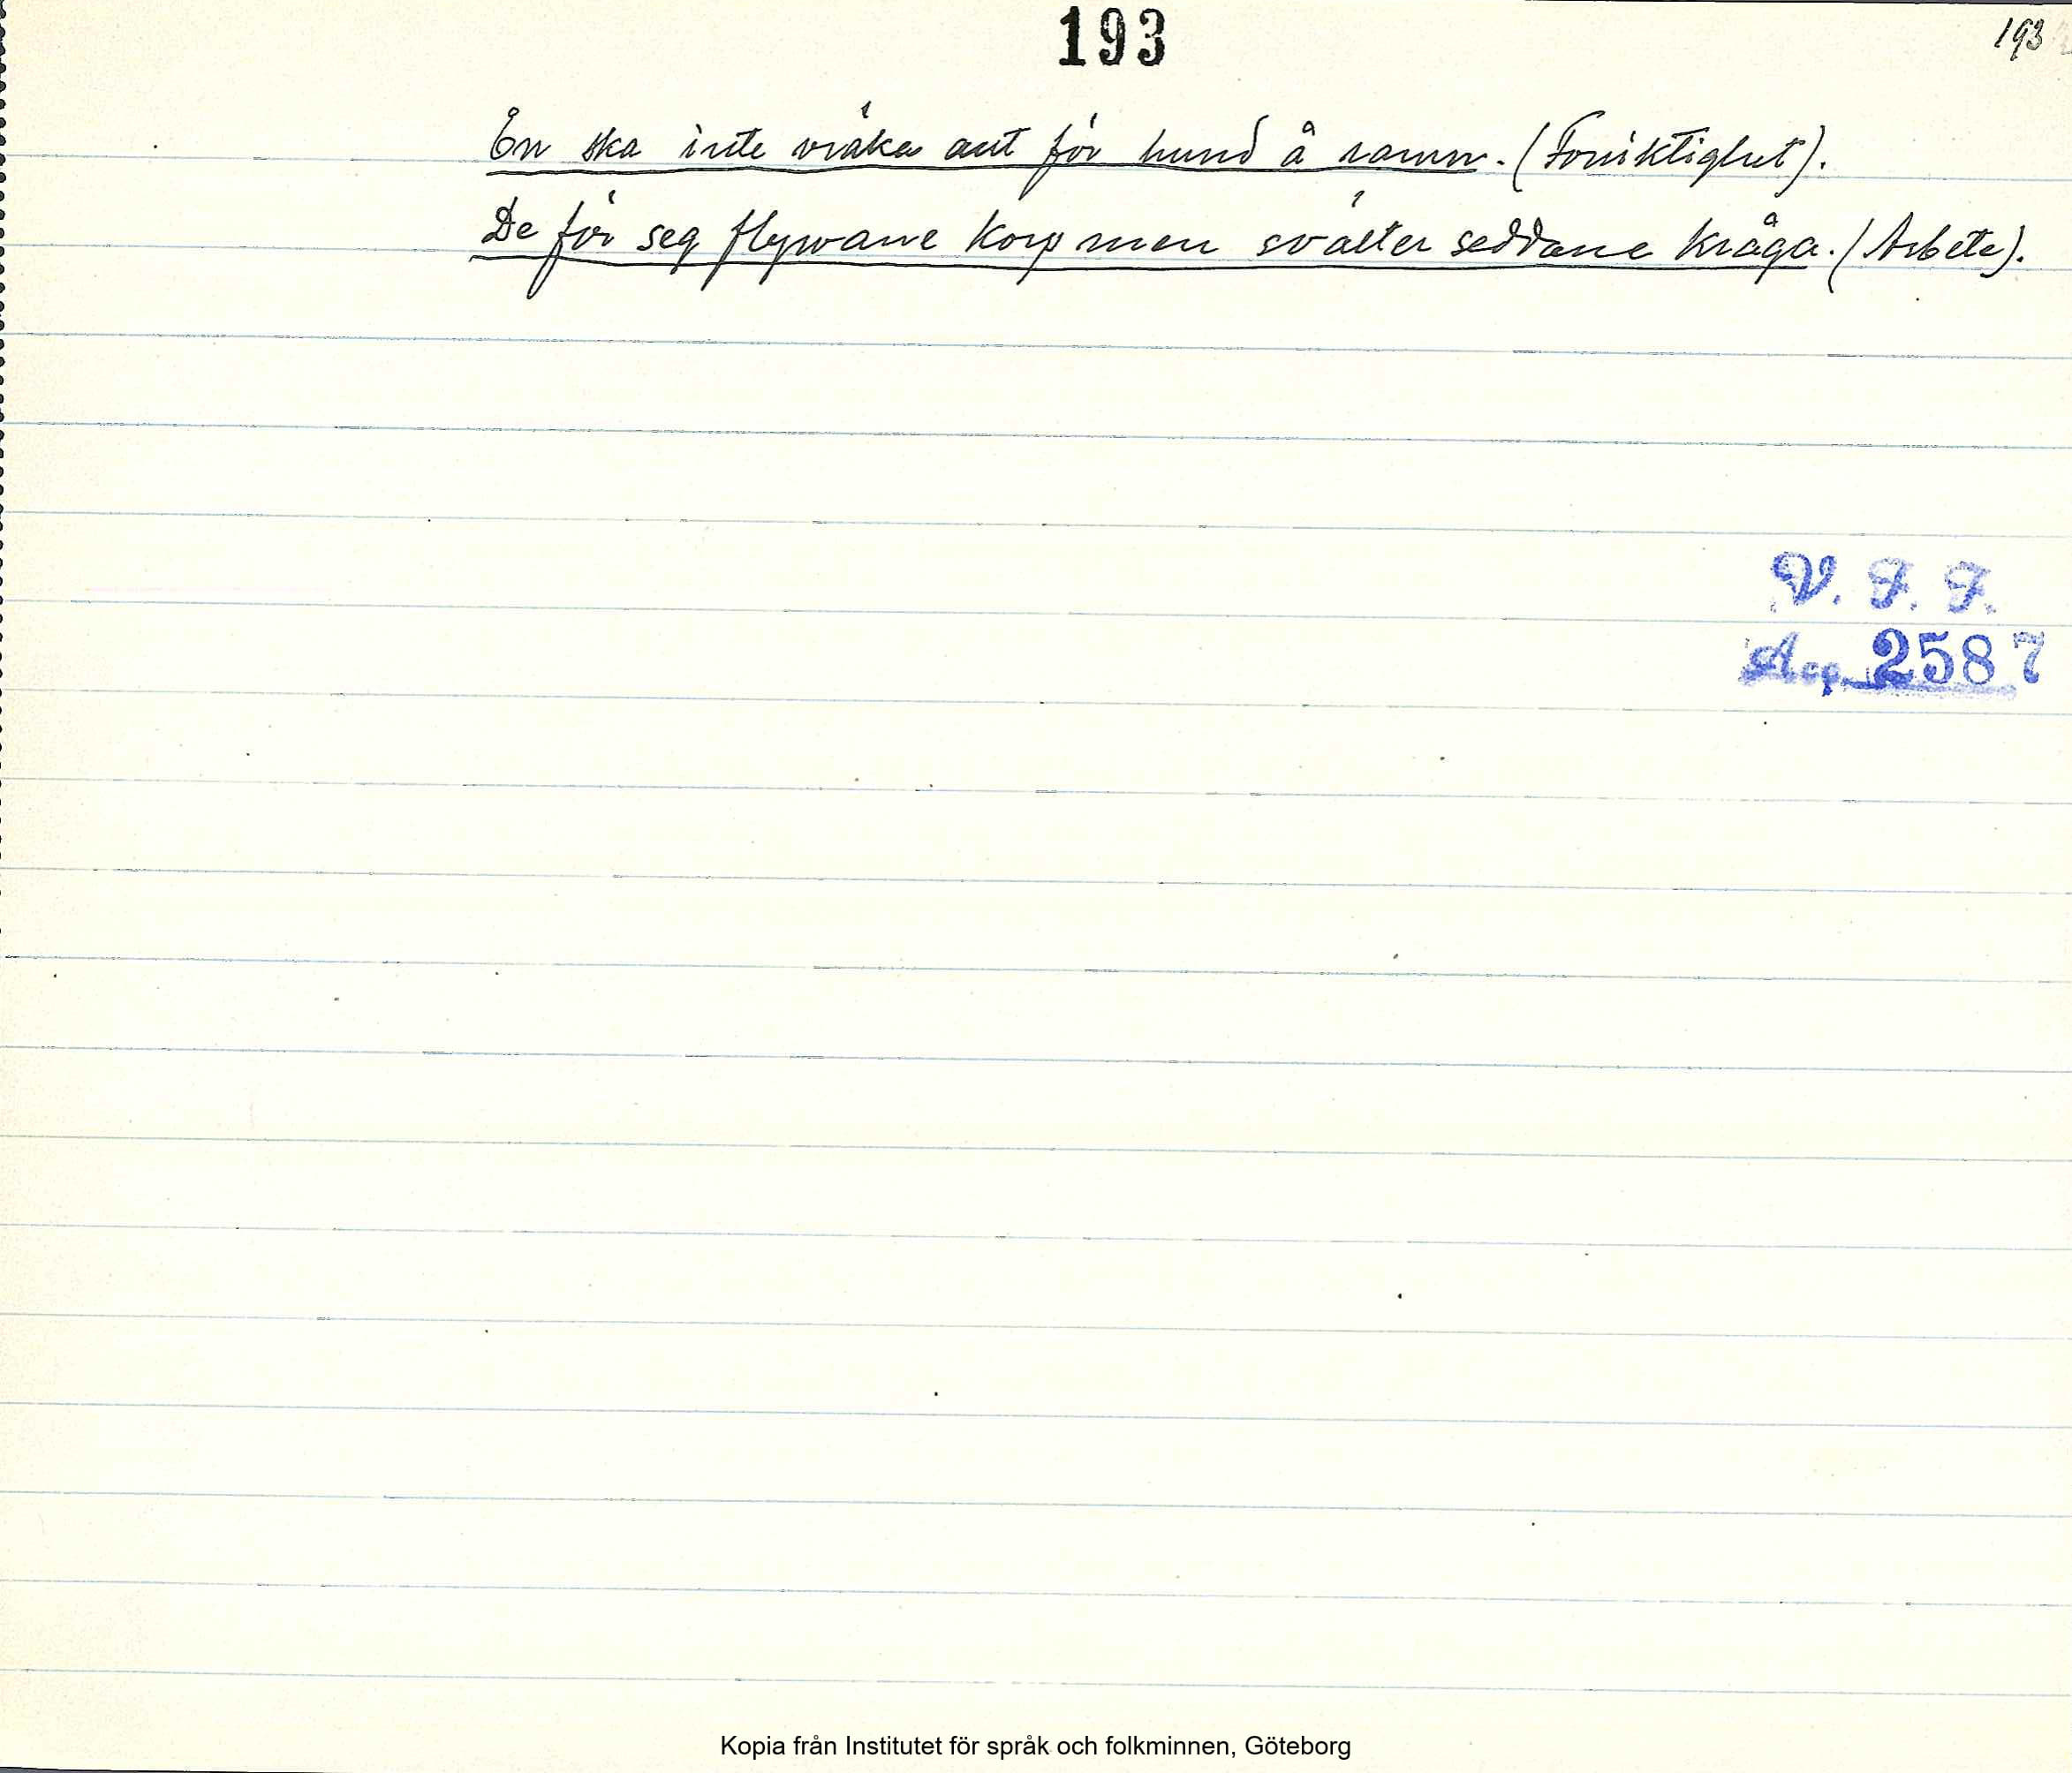 193
193
En ska inte vräka aut för hund å ramn. (Försiktighet).
Deför seg flywane korp men svälter seddane kråga. (Arbete).
V. F. F.
Acc. 2587
Kopia från Institutet för språk och folkminnen, Göteborg